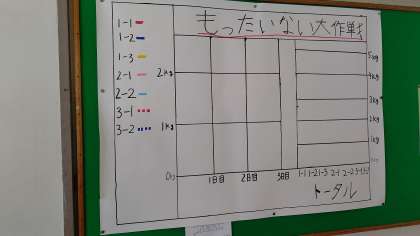 もったいない大作戦
1-1
1-2
1-3
2-1
2-2
3-1
3-2
2kg
1kg
0g
1日目
2日目
3日目
5kg
4kg
3kg
2kg
1kg
1-1 1-2 1-3 2-1 2-2 3-1 3-2
トータル